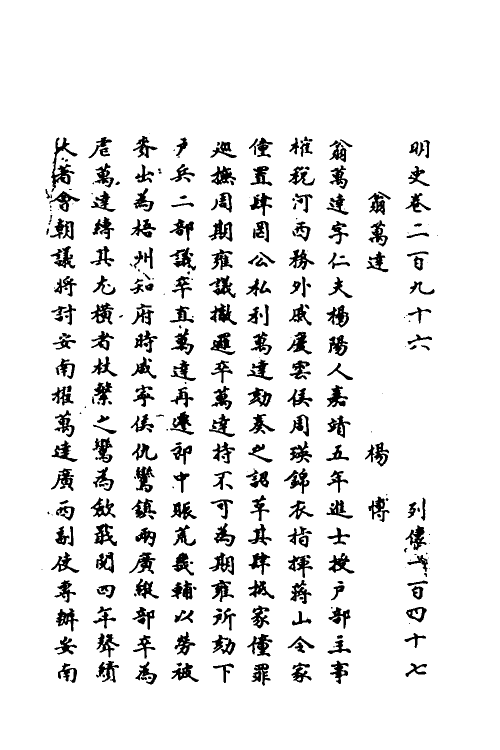 明史卷二百九十六　列傳一百四十七
翁萬達　楊博
翁萬達字仁夫楊陽人嘉靖五年進士授戶部主事
榷稅河西務外戚慶雲侯周瑛錦衣指揮蔣山令家
僮置肆罔公私利萬達劾奏之詔革其肆抵家僮罪
巡撫周期雍議撤邏卒萬達持不可為期雍所劾下
戶兵二部議卒直萬達再遷郎中賑荒畿輔以勞被
賚出為梧州知府時咸寧侯仇鸞鎮兩廣縱部卒為
虐萬達縛其尤橫者杖繫之鸞為斂戢閱四年聲績
大著會朝議將討安南擢萬達廣西副使專辦安南